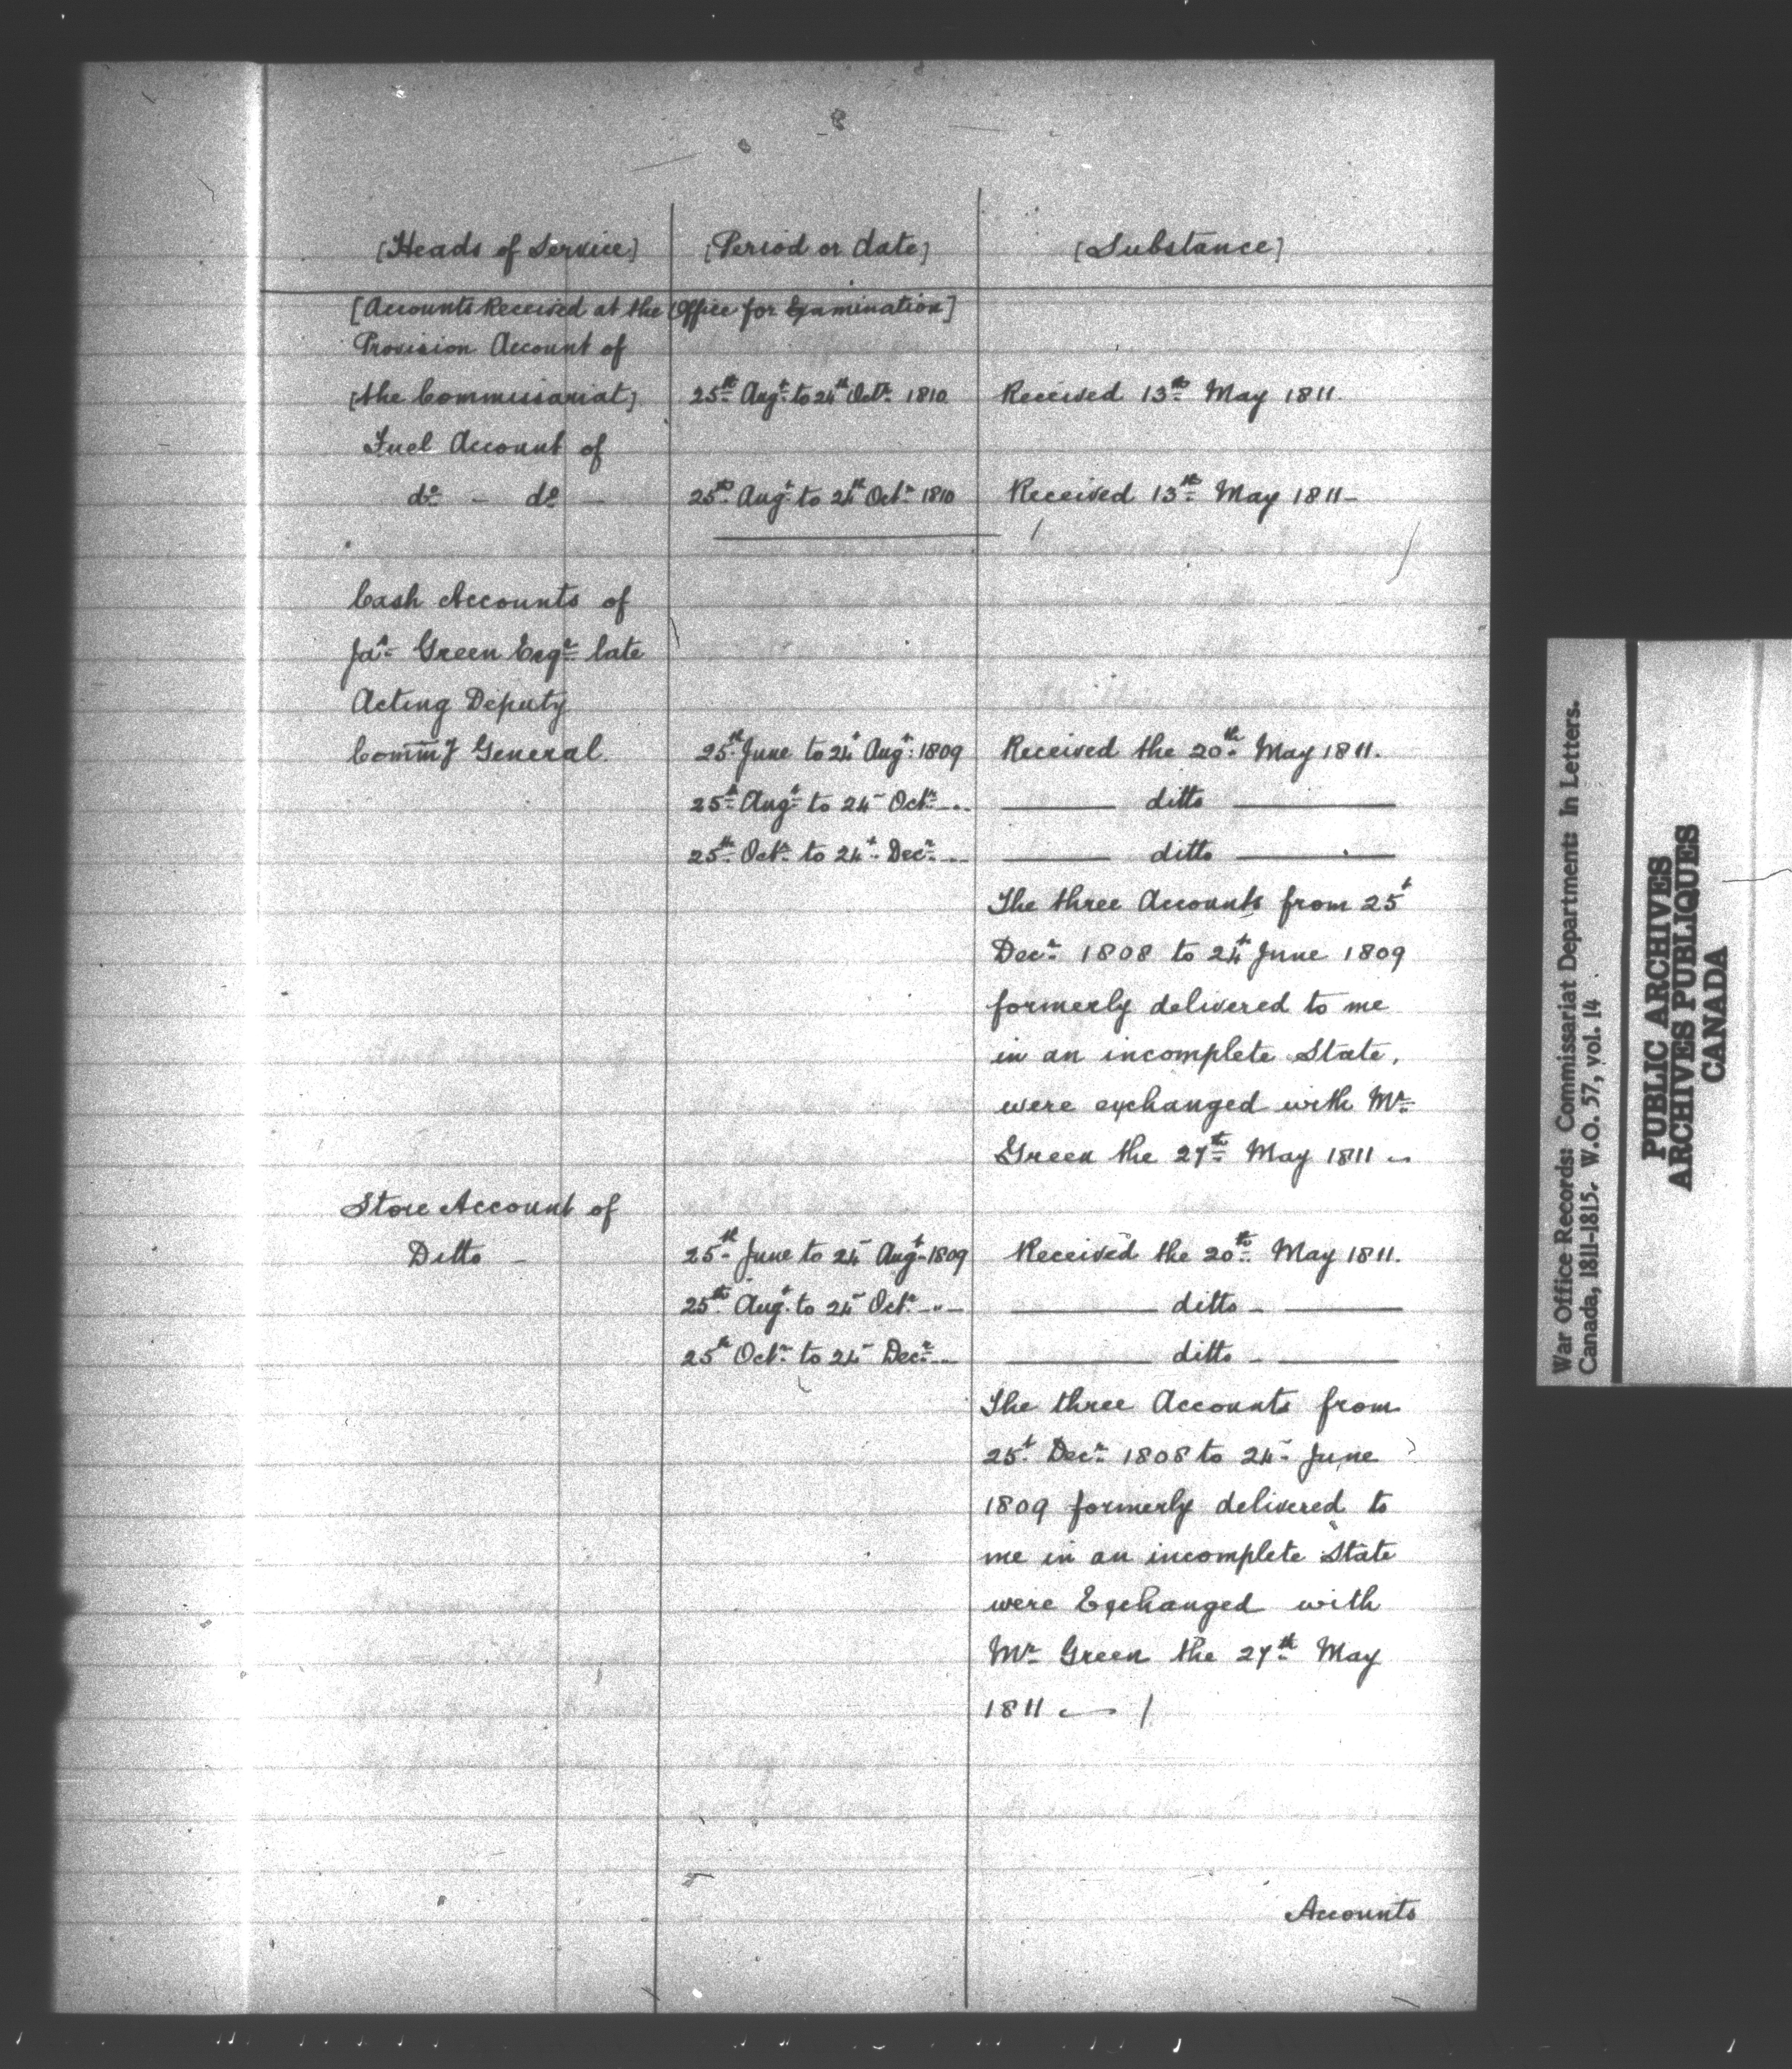 [Heads of Service] [Period or date] [Substance]
[Accounts Received at the Office for Examination]
Provision Account of
[the Commissariat] 25th Augt to 24th Octr 1810 Received 13th May 1811.
Fuel Account of
do - do - 25th Augt to 24th Octr 1810 Received 13th May 1811-
Cash Accounts of
Jas Green Esqr late
Acting Deputy
Commy General. 25th June to 24t Augt 1809 Received the 20th May 1811.
25t Augt to 24 Octr ... ditto
25th Octr to 24t Decr ... ditto
The three Accounts from 25t
Decr 1808 to 24t June 1809
formerly delivered to me
in an incomplete State,
were exchanged with Mr
Green the 27th May 1811
Store Account of
Ditto - 25th June to 24 Augt 1809 Received the 20th May 1811.
25th Augt to 24 Octr -"- ditto -
25th Octr to 24 Decr ... ditto -
The three Accounts from
25t Decr 1808 to 24 June
1809 formerly delivered to
me in an incomplete State
were Exchanged with
Mr Green the 27th May
1811
Accounts
War Office Records: Commissariat Department: In Letters.
Canada, 1811-1815. W.O. 57, vol. 14
PUBLIC ARCHIVES
ARCHIVES PUBLIQUES
CANADA